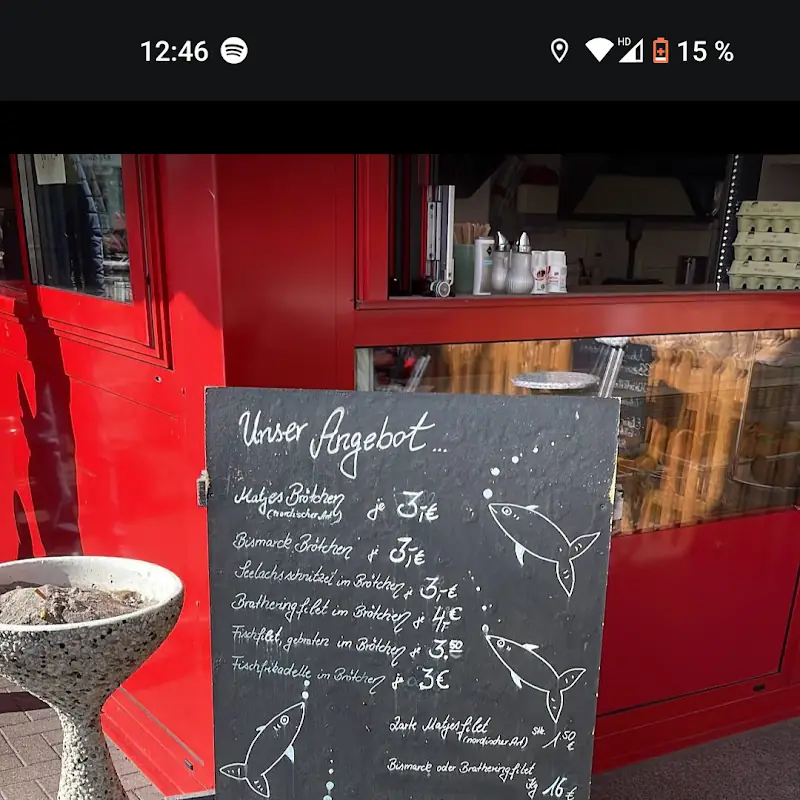 12:46
HD
15 %
Unser Angebot...
Matjes Brötchen je 3,-€
(nordischer Art)
Bismarck Brötchen je 3,-€
Seelachsschnitzel im Brötchen je 3,-€
Bratheringfilet im Brötchen je 4,-€
Fischfilet, gebraten im Brötchen je 3.50
Fischfribadelle im Brötchen je 3€
Zarte Matjesfilet
(nordischer Art) Stk. 1.50 €
Bismarck oder Bratheringfilet
kg 16 €